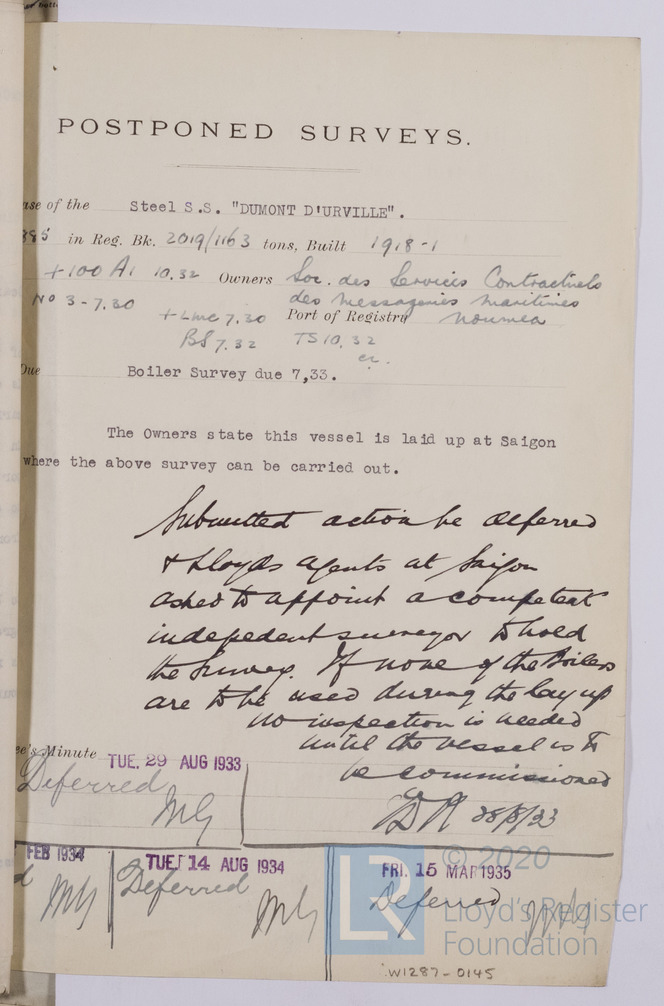 POSTPONED SURVEYS.
use of the Steel S.S. "DUMONT D'URVILLE".
385 in Reg. Bk. 2019/1163 tons, Built 1918-1
+100 A1 10.32 Owners Soc. des Services Contractuels
des Messageries Maritimes
No 3-7.30
+LMC 7.30 Port of Registry Noumea
BS 7.32 TS 10.32
Due Boiler Survey due 7,33.
The Owners state this vessel is laid up at Saigon
where the above survey can be carried out.
Submitted action be deferred
& Lloyds agents at Saigon
asked to appoint a competent
indepedent surveyor to hold
the Survey. If none of the Boilers
are to be used during the lay up
no inspection is needed
until the vessel is to
be commissioned
28/8/33
ee's Minute TUE. 29 AUG 1933
Deferred
FEB 1934
TUE. 14 AUG 1934
Deferred
FRI. 15 MAR 1935
Deferred
© 2020
LR
Lloyd's Register
Foundation
W1287-0145